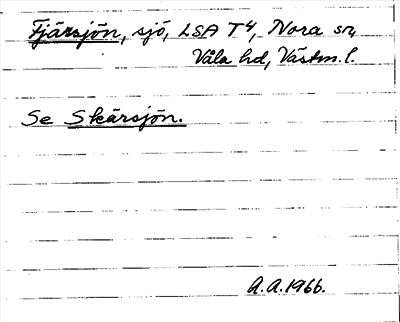 Fjärsjön, sjö, LSA T4, Nora sn,
Våla hd, Västm. l.
Se Skärsjön.
A.A. 1966.